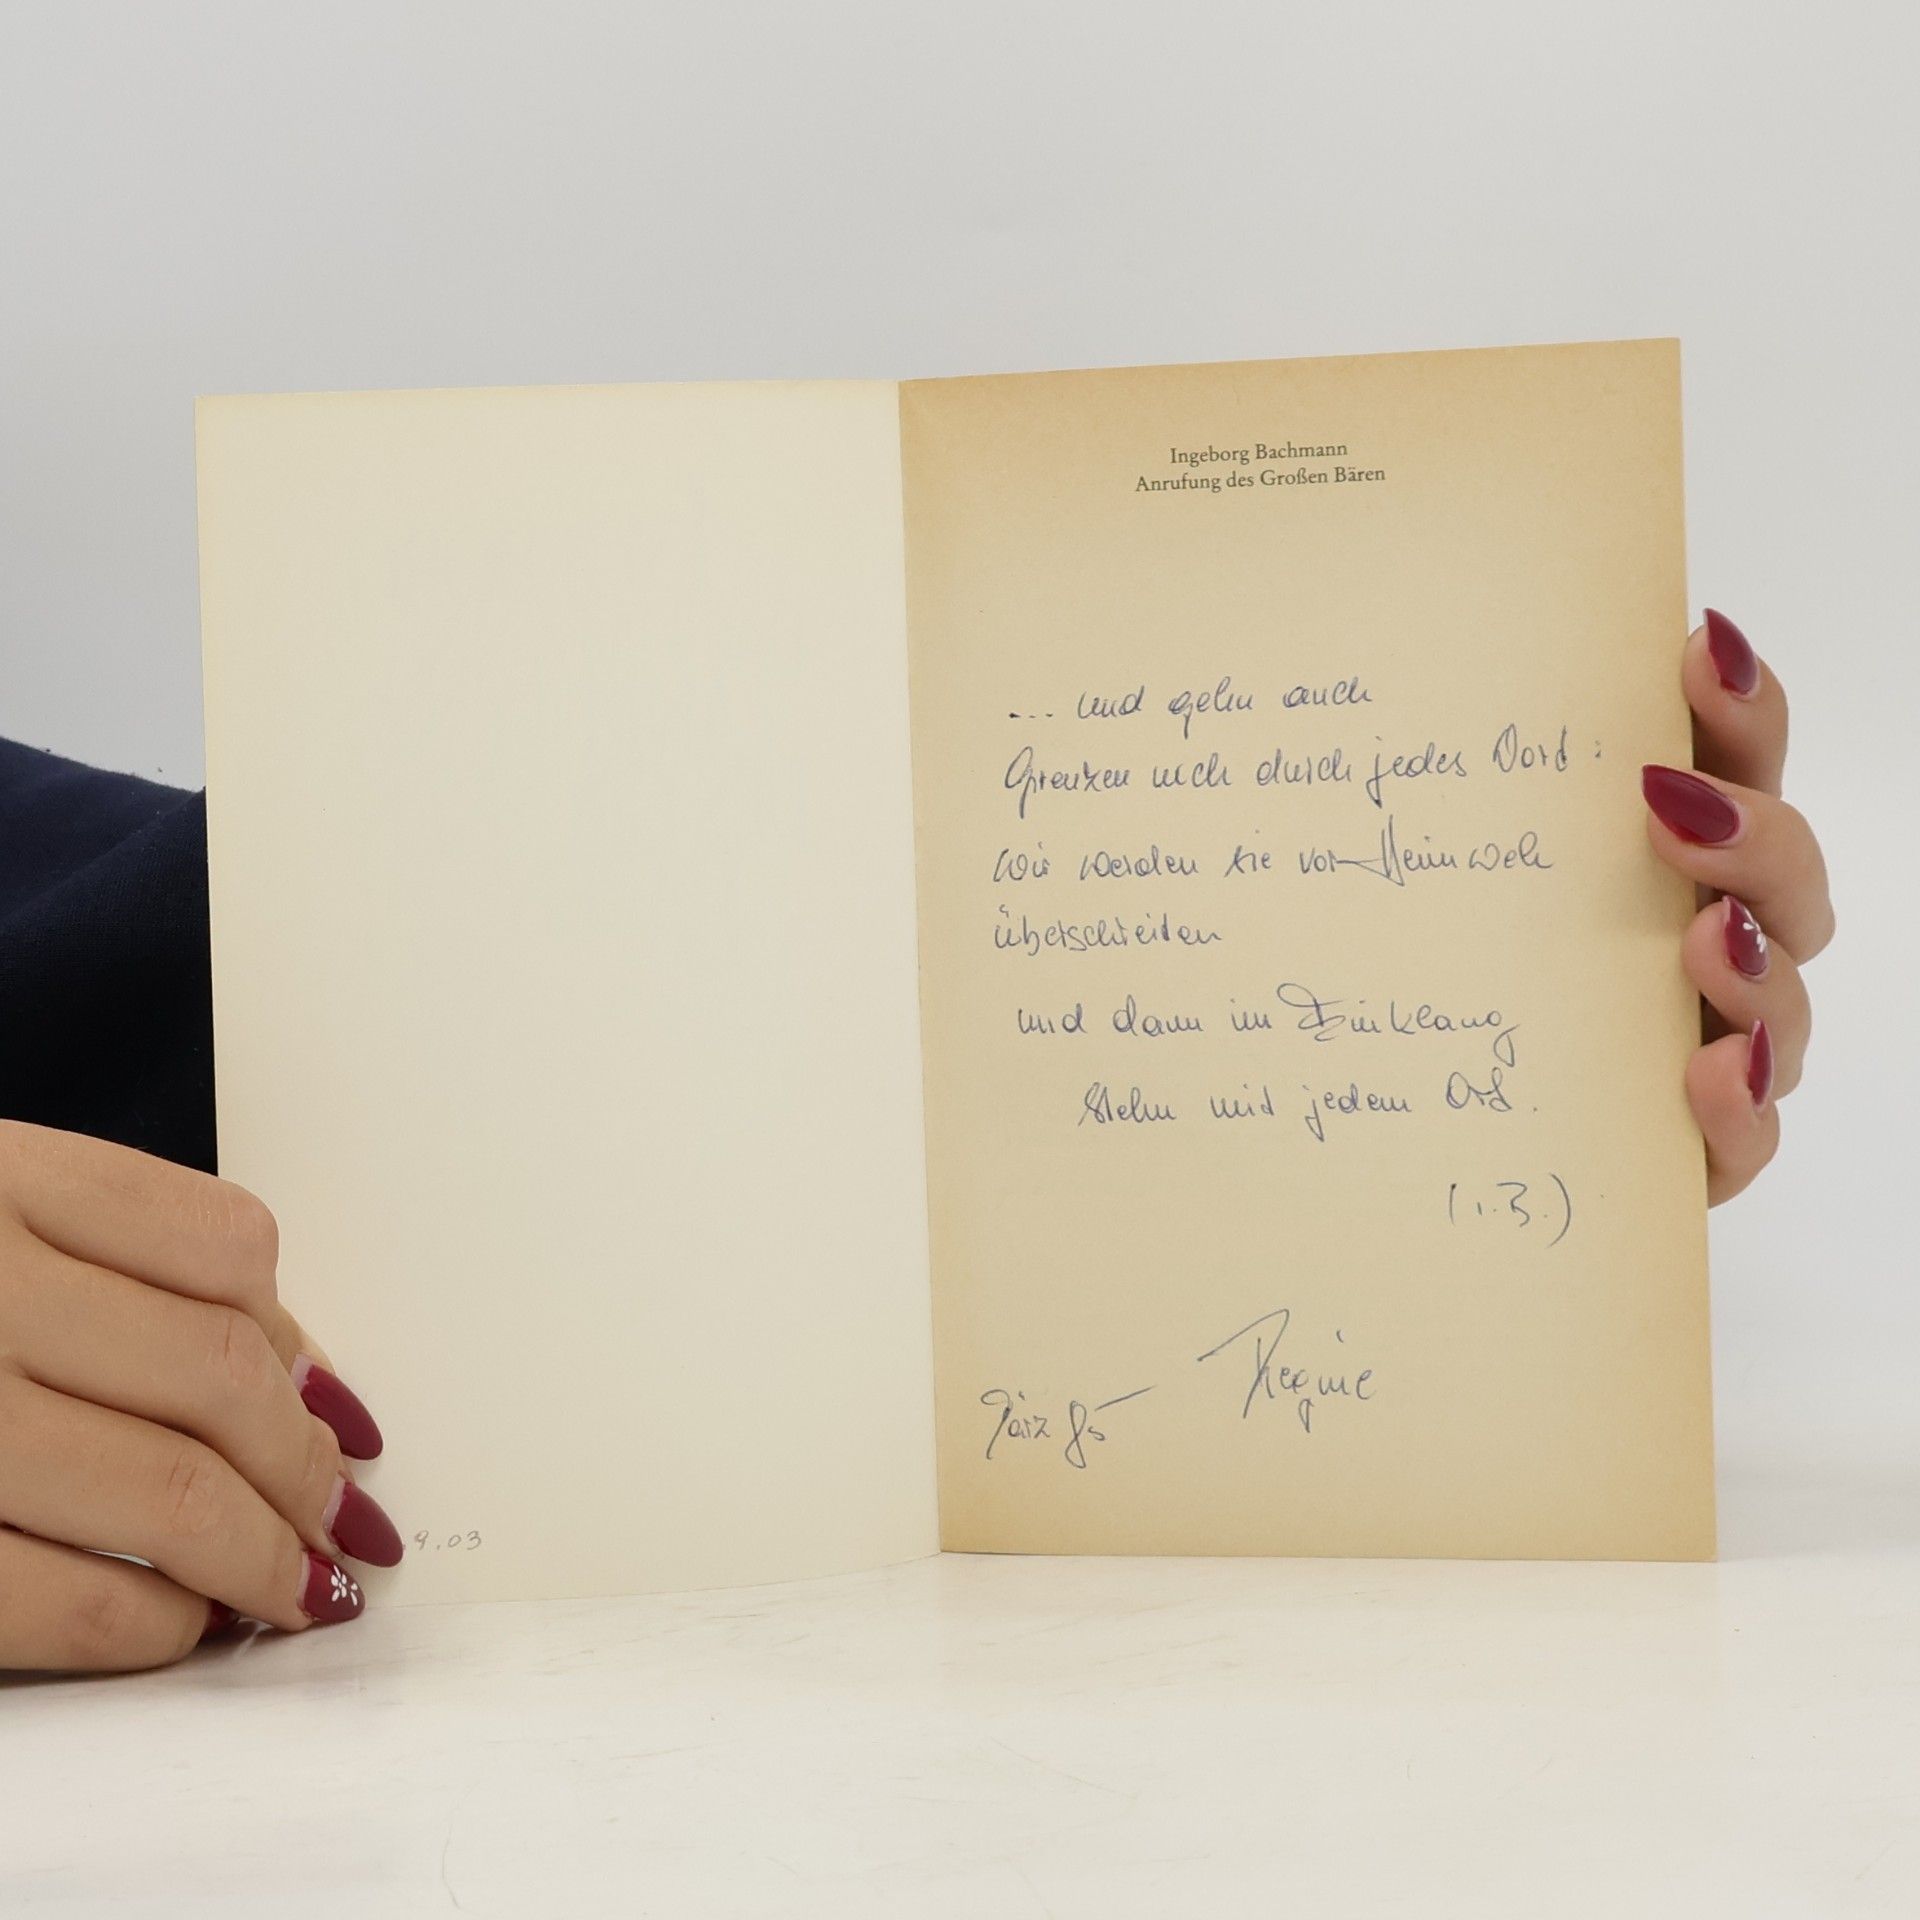 .9.03
Ingeborg Bachmann
Anrufung des Großen Bären
... und gehn auch
Grenzen noch durch jedes Wort:
Wir werden sie vor Heimweh
überschreiten
und dann im Einklang
stehn mit jedem Ort.
(I.B.)
Regine
März 85